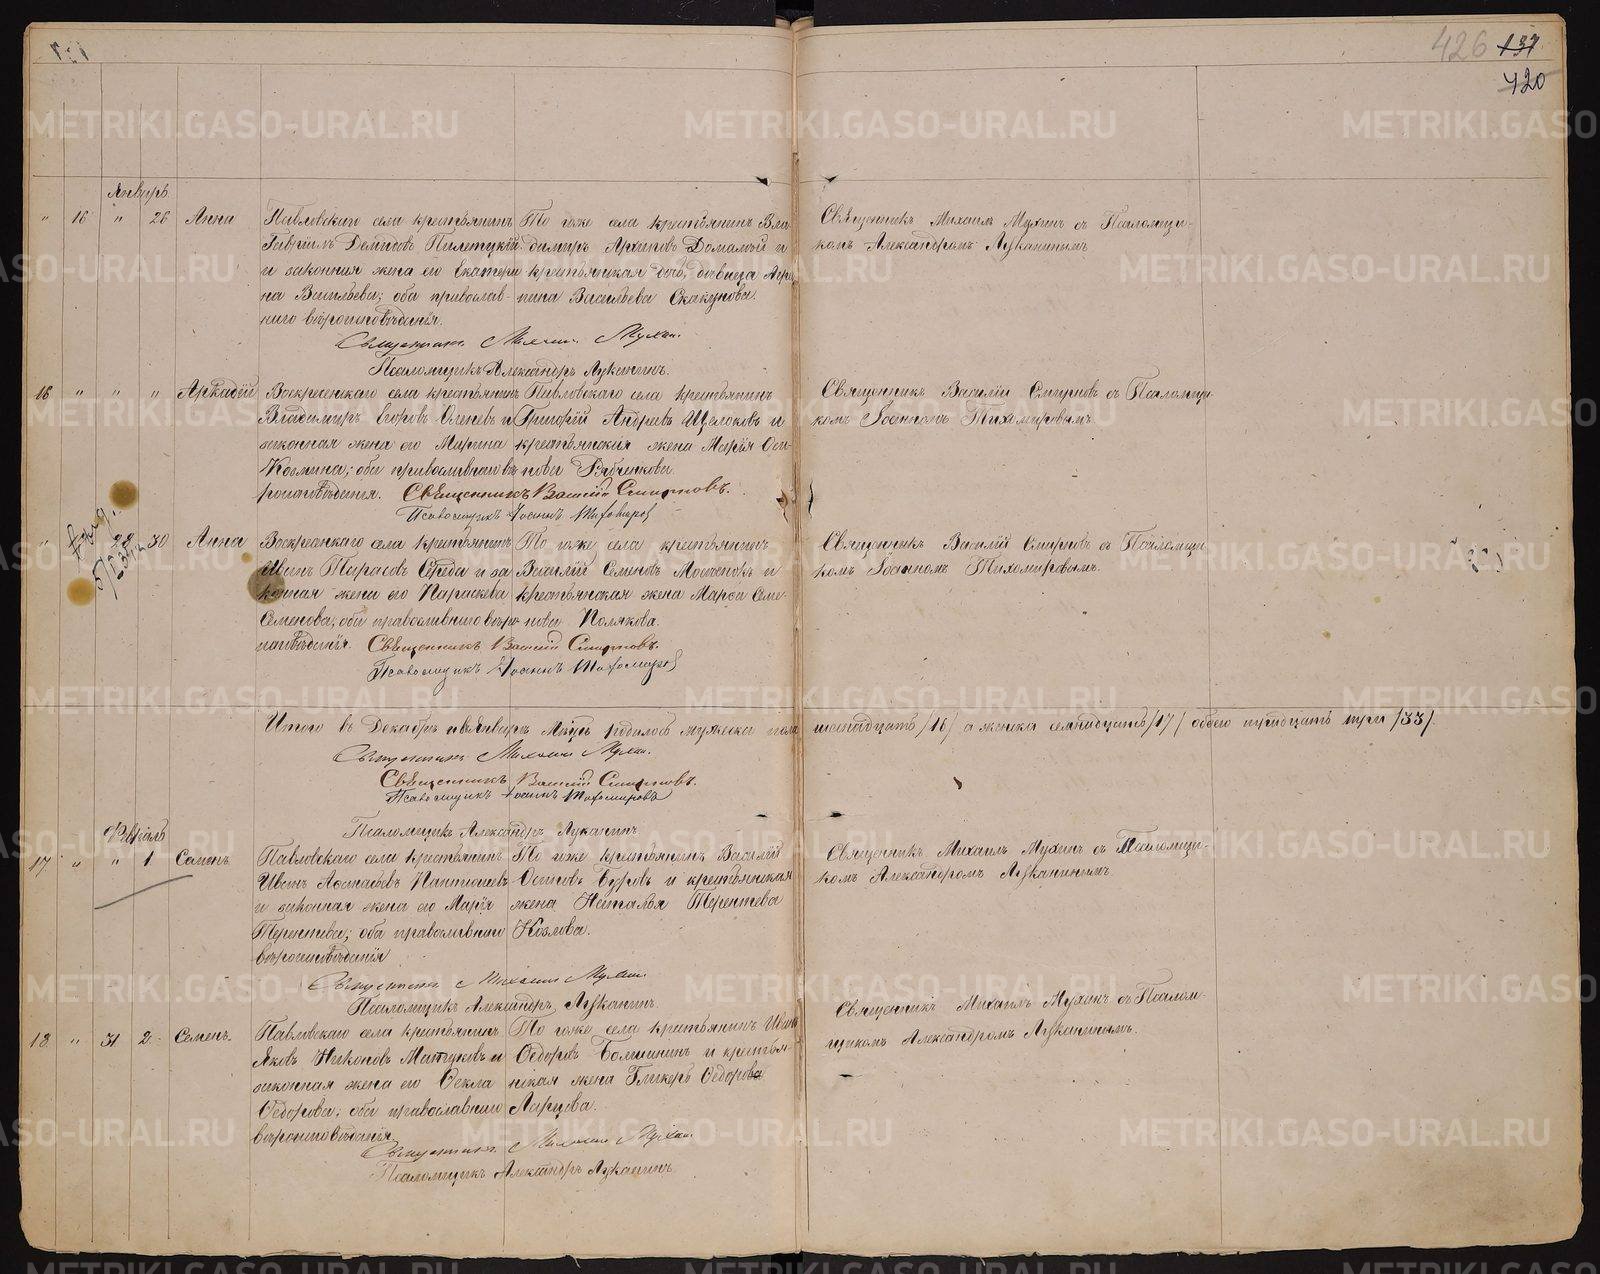 426 137
420
Январь
" 16 " 26 Анна
Павловскаго села крестьянинъ
Гавріилъ Демидовъ Пилецкій
и законная жена его Екатери-
на Васильева; оба православ-
наго вѣроисповѣданія.
То же села крестьянинъ Вла-
димиръ Архиповъ Домашый и
крестьянская дочь, дѣвица Агри-
пина Васильева Скакунова.
Священникъ Михаилъ Мухинъ съ Псаломщи-
комъ Александромъ Луканинымъ
Священникъ Михаилъ Мухинъ.
Псаломщикъ Александръ Луканинъ.
16 " " " Аркадій
Воскресенскаго села крестьянинъ
Владимиръ Егоровъ Оленевъ и
законная жена его Марина
Козмина; оба православнаго вѣ-
роисповѣданія.
Павловскаго села крестьянинъ
Григорій Андреевъ Щелоковъ и
крестьянская жена Марія Оси-
пова Рябченкова.
Священникъ Василій Смирновъ съ Псаломщи-
комъ Іоанномъ Тихомировымъ
Священникъ Василій Смирновъ.
Псаломщикъ Іоаннъ Тихомировъ
" 28 30 Анна
Воскресенскаго села крестьянинъ
Иванъ Тарасовъ Середа и за-
конная жена его Параскева
Семенова; оба православнаго вѣро-
исповѣданія.
То же села крестьянинъ
Василій Семеновъ и
крестьянская жена Марѳа Семе-
нова Полякова.
Священникъ Василій Смирновъ съ Псаломщи-
комъ Іоанномъ Тихомировымъ.
Священникъ Василій Смирновъ.
Псаломщикъ Іоаннъ Тихомировъ
Итого въ Декабрѣ и въ Январѣ Мѣсяцѣ родилось мужеска пола шестнадцать /16/ а женска семнадцать /17/ обоего тридцать три /33/.
Священникъ Михаилъ Мухинъ.
Священникъ Василій Смирновъ.
Псаломщикъ Іоаннъ Тихомировъ
Псаломщикъ Александръ Луканинъ
Февраль
17 " " 1 Семенъ
Павловскаго села крестьянинъ
Иванъ Аѳанасьевъ Пантюшевъ
и законная жена его Марія
Терентьева; оба православнаго
вѣроисповѣданія
То же крестьянинъ Василій
Осиповъ Буровъ и крестьянская
жена Наталья Терентьева
Козлова.
Священникъ Михаилъ Мухинъ съ Псаломщи-
комъ Александромъ Луканинымъ
Священникъ Михаилъ Мухинъ.
Псаломщикъ Александръ Луканинъ.
18. " 31 2 Семенъ.
Павловскаго села крестьянинъ
Яковъ Никоновъ Матуковъ и
законная жена его Ѳекла
Ѳедорова; оба православнаго
вѣроисповѣданія
То же села крестьянинъ Иванъ
Ѳедоровъ Болшининъ и крестья-
нская жена Гликерь Ѳедорова
Ларцова.
Священникъ Михаилъ Мухинъ съ Псалом-
щикомъ Александромъ Луканинымъ.
Священникъ Михаилъ Мухинъ.
Псаломщикъ Александръ Луканинъ.
METRIKI.GASO-URAL.RU